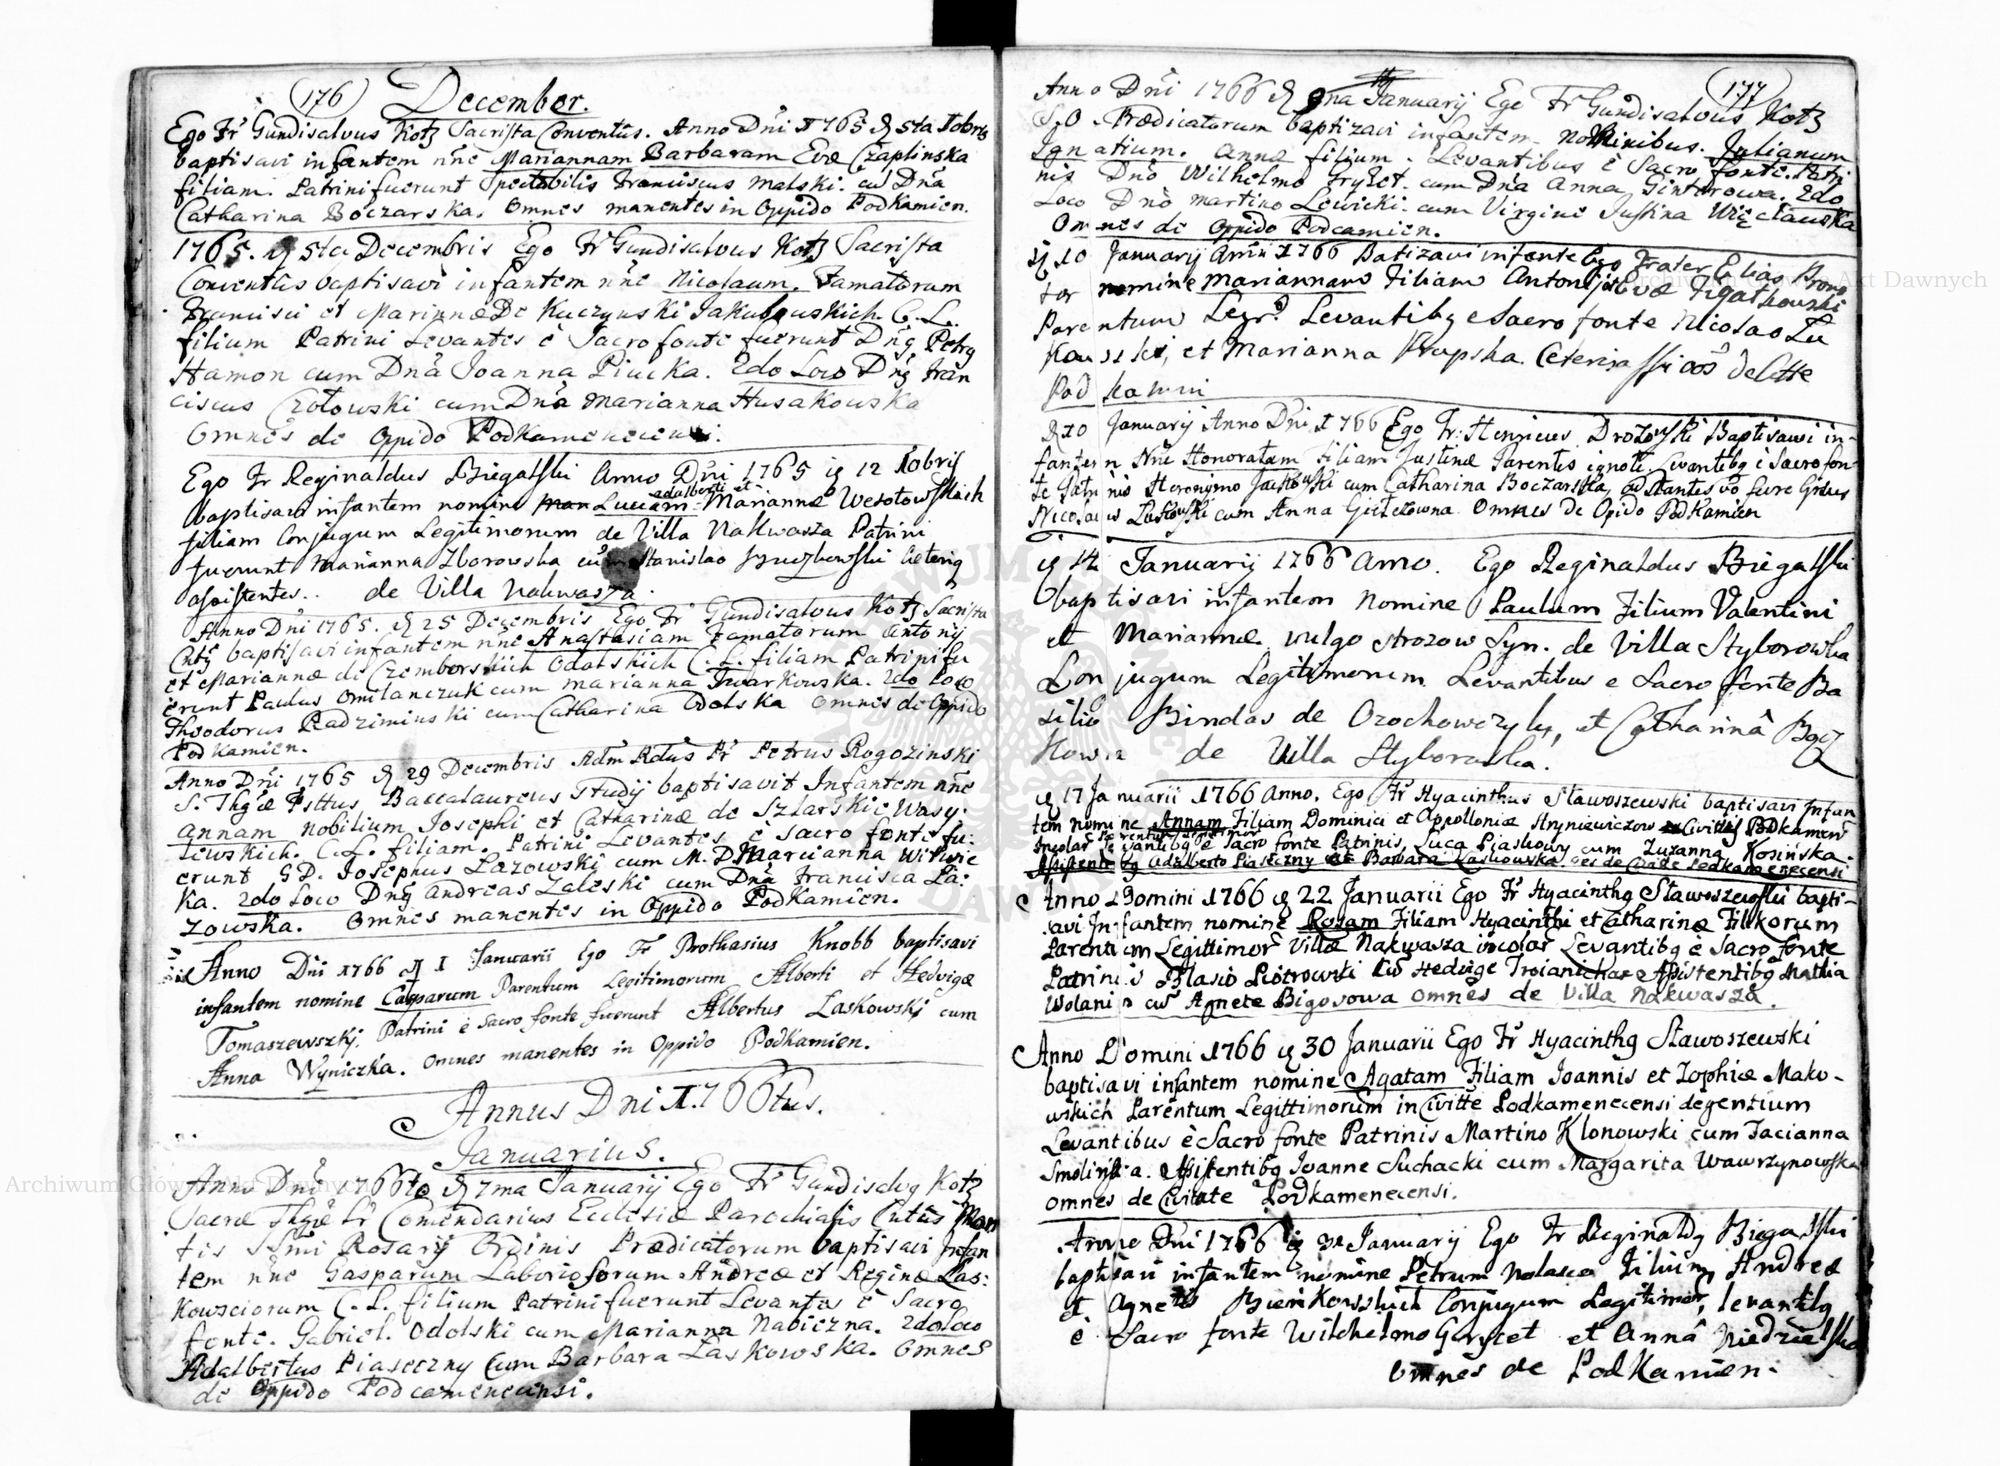 176 December.
Ego Fr Gundisalvus Kotz Sacrista Conventus. Anno Dni 1765 5ta Xbris
baptisavi infantem nne Mariannam Barbaram Evæ Czaplinska
filiam. Patrini fuerunt Spectabilis Franciscus Malski. cu Dna
Catharina Boczarska. Omnes manentes in Oppido Podkamien.
1765. 5ta Decembris Ego Fr Gundisalvus Kotz Sacrista
Conventus baptisavi infantem nne Nicolaum. Famatorum
Francisci et Mariannæ De Kuczynski Jakubouskich C. L.
filium Patrini Levantes è Sacro fonte fuerunt Dng Petrg
Hamon cum Dna Joanna Piucka. 2do Loco Dng Fran
ciscus Czołowski cum Dna Marianna Husakowska
Omnes de Oppido
Ego Fr Reginaldus Biegalski Anno Dni 1765 12 Xbris
baptisavi infantem nomine Luciam adalberti et Mariannæ Wesołowskich
filiam Conjugum Legitimorum de Villa Nakwasza Patrini
fuerunt Marianna Zborowska cum Stanislao
assistentes.. de Villa Nakwasza.
Anno Dni 1765. 25 Decembris Ego Fr Gundisalvus Kotz Sacrista
baptisavi infantem nne Anastasiam Famatorum Antonij
et Mariannæ de Czemberskich Odolskich C. L. filiam Patrini fu
erunt Paulus Omilanczuk cum Marianna Twarkowska. 2do Loco
Theodorus Radziminski cum Catharina Odolska Omnes de Oppido
Podkamien.
Anno Dni 1765 29 Decembris Adm Rdus Pr Petrus Rogozinski
S. Thgiæ Baccalaureus Studij baptisavit Infantem nne
Annam Nobilium Josephi et Catharinæ de Szlarskie Wasy:
liewskich. C. L. filiam. Patrini Levantes è sacro fonte fu:
erunt GD. Josephus Lazowski cum M. D. Marcianna Witwic
Ka. 2do Loco Dng Andreas Zaleski cum Dna Francisca La:
zowska. Omnes manentes in Oppido Podkamien.
Anno Dni 1766 1 Januarii Ego Fr Prothasius Knobb baptisavi
infantem nomine Casparum Parentum Legitimorum Alberti et Hedvigæ
Tomaszewszkj; Patrini è sacro fonte fuerunt Albertus Laskowskj cum
Anna Wyniczka. Omnes manentes in Oppido Podkamien.
Annus Dni 1766tus.
Januarius.
Anno Dni 1766to 7ma Januarij Ego Fr Gundisalvg Kotz
Sacræ Thgiæ Lr Comendarius Ecclesiæ Parochialis
tis Ssmi Rosarij Ordinis Prædicatorum baptisavi Infan
tem nne Gasparum Laboriosorum Andreæ et Reginæ Las:
kowsciorum C. L. filium Patrini fuerunt Levantes è Sacro
fonte. Gabriel. Odolski cum Marianna Nabiczna. 2do loco
Adalbertus Piaseczny cum Barbara Laskowska. Omnes
de Oppido Podcamenecensi.
177
Anno Dni 1766 9na Januarij Ego Fr Gundisalvus Kotz
S. O. Prædicatorum baptizavi infantem Nominibus. Julianum
Ignatium. Annæ filium. Levantibus è Sacro fonte. Patri
nis Dno Wilhelmo Gryzet. cum Dna Anna Ginterowa. 2do
Loco Dno Martino Lewicki. cum Virgine Justina Więcławska
Omnes de Oppido Podcamien.
10 Januarij Anni 1766 Batizavi infante Ego Frater Elias Brono
tor nomine Mariannam Filiam Antonij
Parentum Legr. Levantibg e Sacro fonte Nicolao Zu
kowski, et Marianna Krupska.
Pod kamin
10 Januarij Anno Dni 1766 Ego Fr: Henricus Drozowski Baptisavi in-
fantem Nne Honoratam Filiam Justinæ Parentis ignoti. Levantibg è Sacro fon
te Patrinis Heronymo cum Catharina Boczarska,
Nicolaus cum Anna Omnes De Opido Podkamien
14 Januarij 1766 Anno. Ego Reginaldus Biegalski
baptisavi infantem Nomine Paulum Filium Valentini
et Mariannæ vulgo Strozow Syn. de Villa Styborowka
Conjugum Legitimorum Levantibus e Sacro fonte Ba
silio Bindas de et Catharinâ Bocz
Kowa de Villa Styborowka.
17 Januarii 1766 Anno. Ego Fr Hyacinthus Stawoszewski baptisavi Infan
tem nomine Annam Filiam Dominici et Appolloniæ Hryniewiczow Civittis Podkamen
Incolar Parentum Legittimor Levantibg è Sacro fonte Patrinis, Luca Piaskowy cum Zuzanna Kosińska.
Assistentibg Adalberto Piaseczny et Barbara Laskowska. Podkamenecensi
Anno Domini 1766 22 Januarii Ego Fr Hyacinthg Stawoszewski bapti-
savi Infantem nomine Rosam Filiam Hyacinthi et Catharinæ Filkorum
Parentum Legittimor Villæ Nakwasza incolar Levantibg è Sacro fonte
Patrinis Blasio Piotrowski cu Hedvige Troianicha Assistentibg Mathia
Wolanin cu Agnete Bigosowa Omnes de Villa Nakwasza.
Anno Domini 1766 30 Januarii Ego Fr Hyacinthg Stawoszewski
baptisavi infantem nomine Agatam Filiam Joannis et Zophiæ Mako-
wskich Parentum Legittimorum in Civitte Podkamenecensi degentium
Levantibus è Sacro fonte Patrinis Martino Klonowski cum Tacianna
Smolinska. Assistentibg Joanne Suchacki cum Margarita Wawrzynowska
Omnes de Civitate Podkamenecensi.
Anno Dni 1766 Januarij Ego Fr Reginaldg Biegalski
baptisavi infantem nomine Petrum Nolasco Filium Andreæ
et Agnetis Bienkowskich Conjugum Legitimor, levantibg
è Sacro fonte Wilchelmo Gryzet et Annâ Niedzialska
Omnes de Podkamien.
Archiwum Główne Akt Dawnych
Archiwum Główne Akt Dawnych
ARCHIWUM GŁÓWNE AKT DAWNYCH